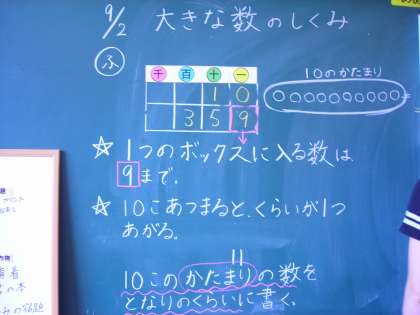 9/2 大きな数のしくみ
ふ
千 百 十 一
1 0
3 5 9
10のかたまり
☆ 1つのボックスに入る数は
9まで。
☆ 10こあつまると、くらいが1つ
あがる。
10このかたまりの数を
となりのくらいに書く。